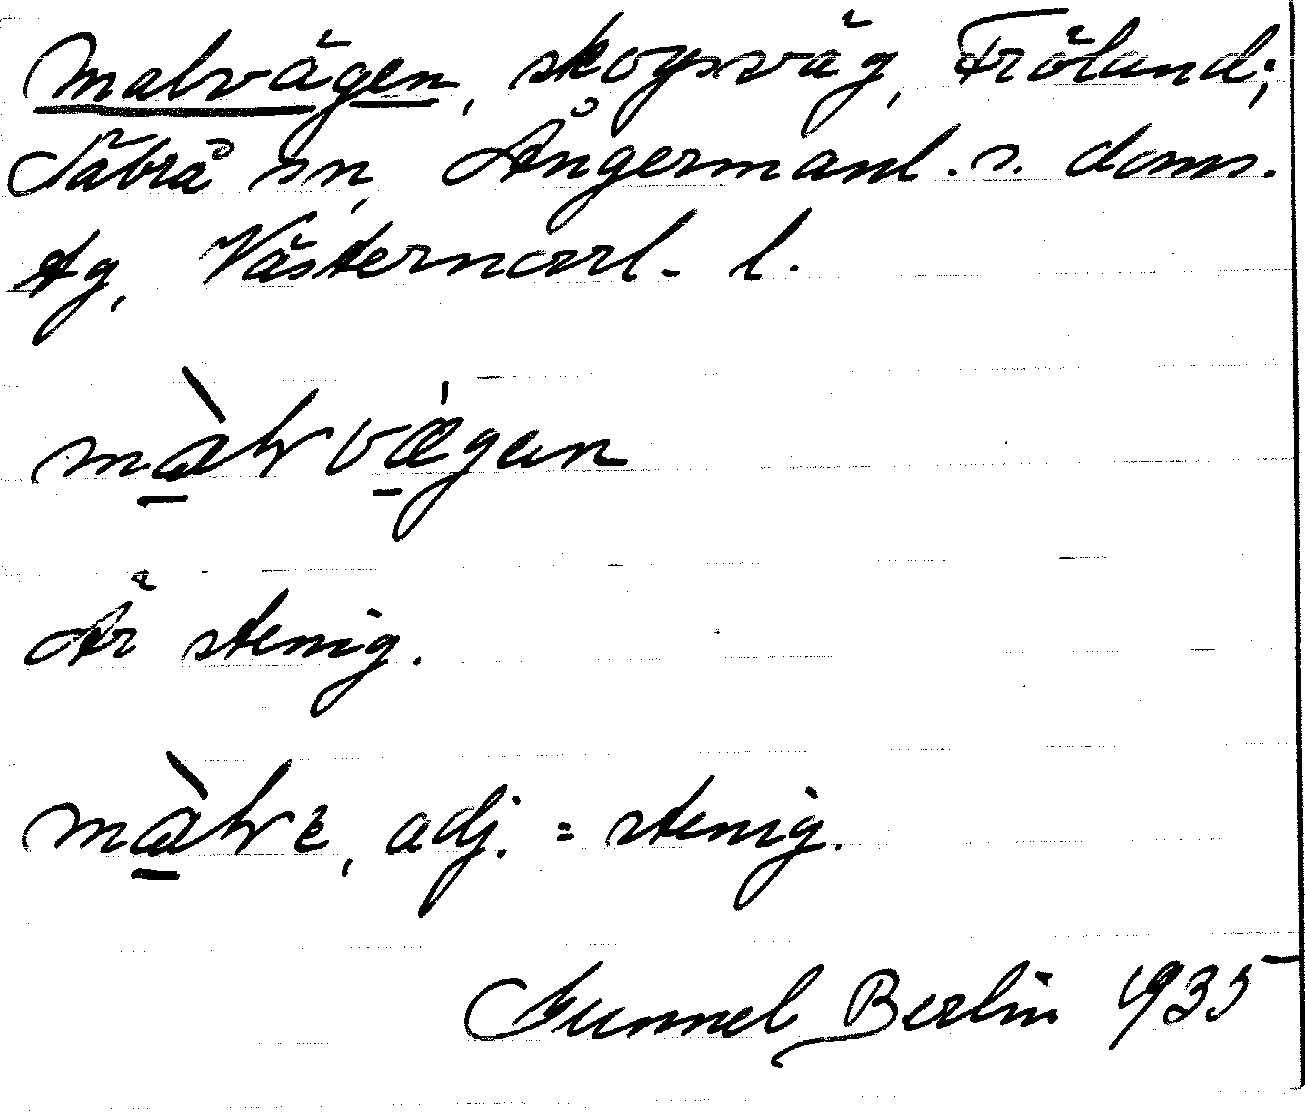 Malvägen, skogsväg, Fröland;
Säbrå sn, Ångermanl. s. doms.
tg, Västernorrl. l.
màlvǽgan
Är stenig.
màlvè, adj. = stenig.
Gunnel Berlin 1935